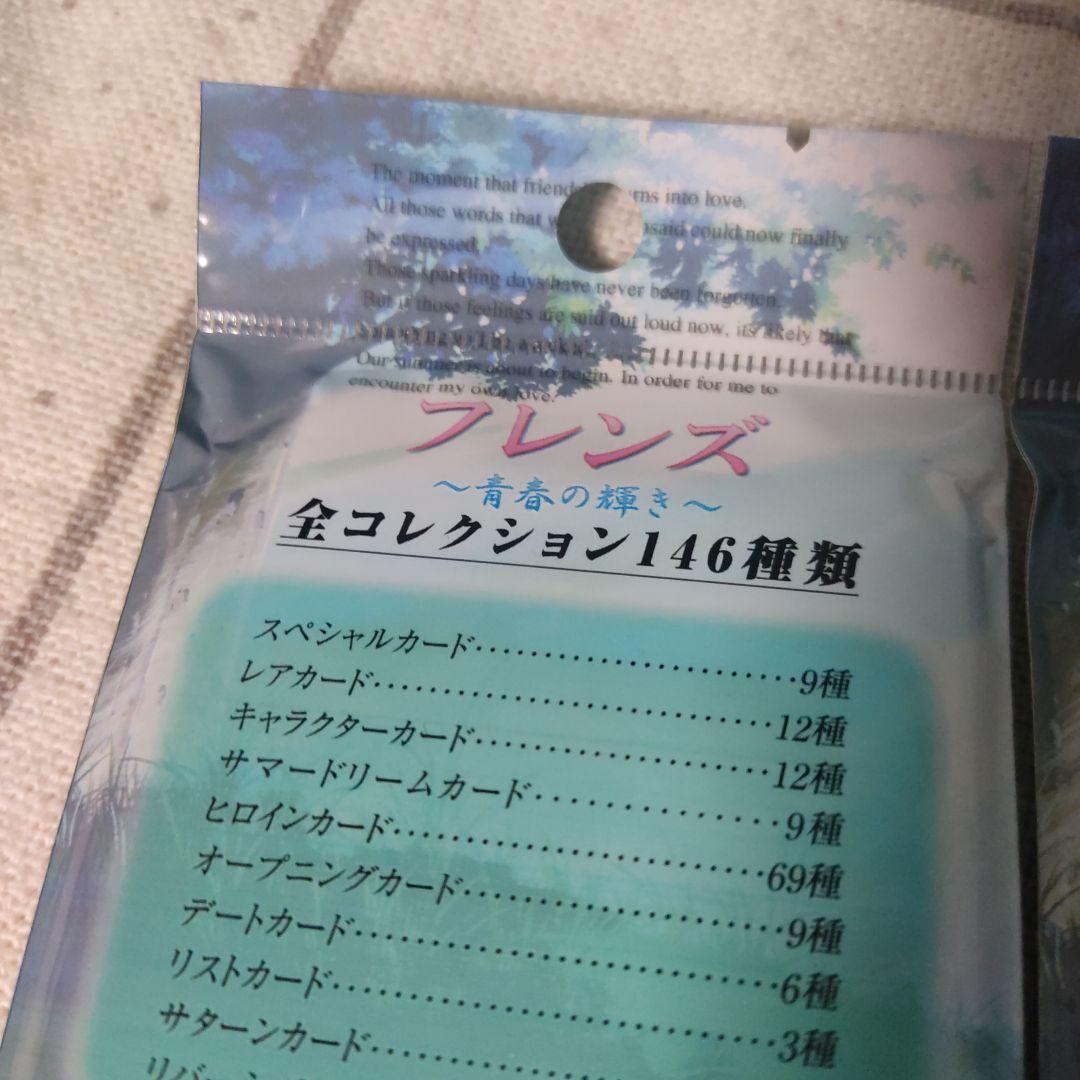 The moment that friend rns into love.
All those words that w said could now finally
be expressed.
Those sparkling days have never been forgotten.
But if those feelings are said out loud now, its likely that
Our summer is about to begin. In order for me to
encounter my own love.
フレンズ
～青春の輝き～
全コレクション146種類
スペシャルカード 9種
レアカード 12種
キャラクターカード 12種
サマードリームカード 9種
ヒロインカード 69種
オープニングカード 9種
デートカード 6種
リストカード 3種
サターンカード
リバー